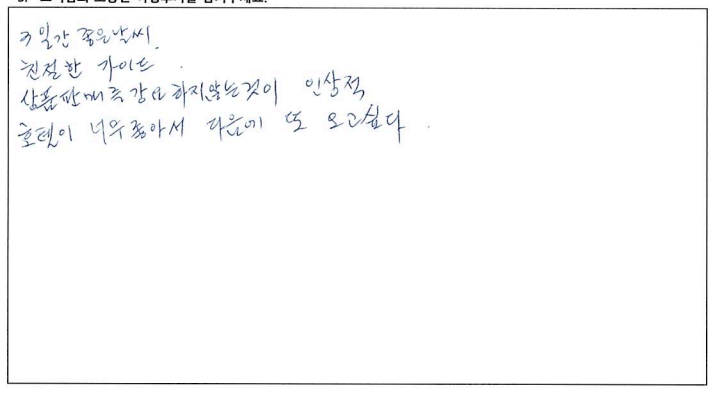 3일간 좋은날씨.
친절한 가이드.
상품판매를 강요하지않는것이 인상적
호텔이 너무좋아서 다음에 또 오고싶다.